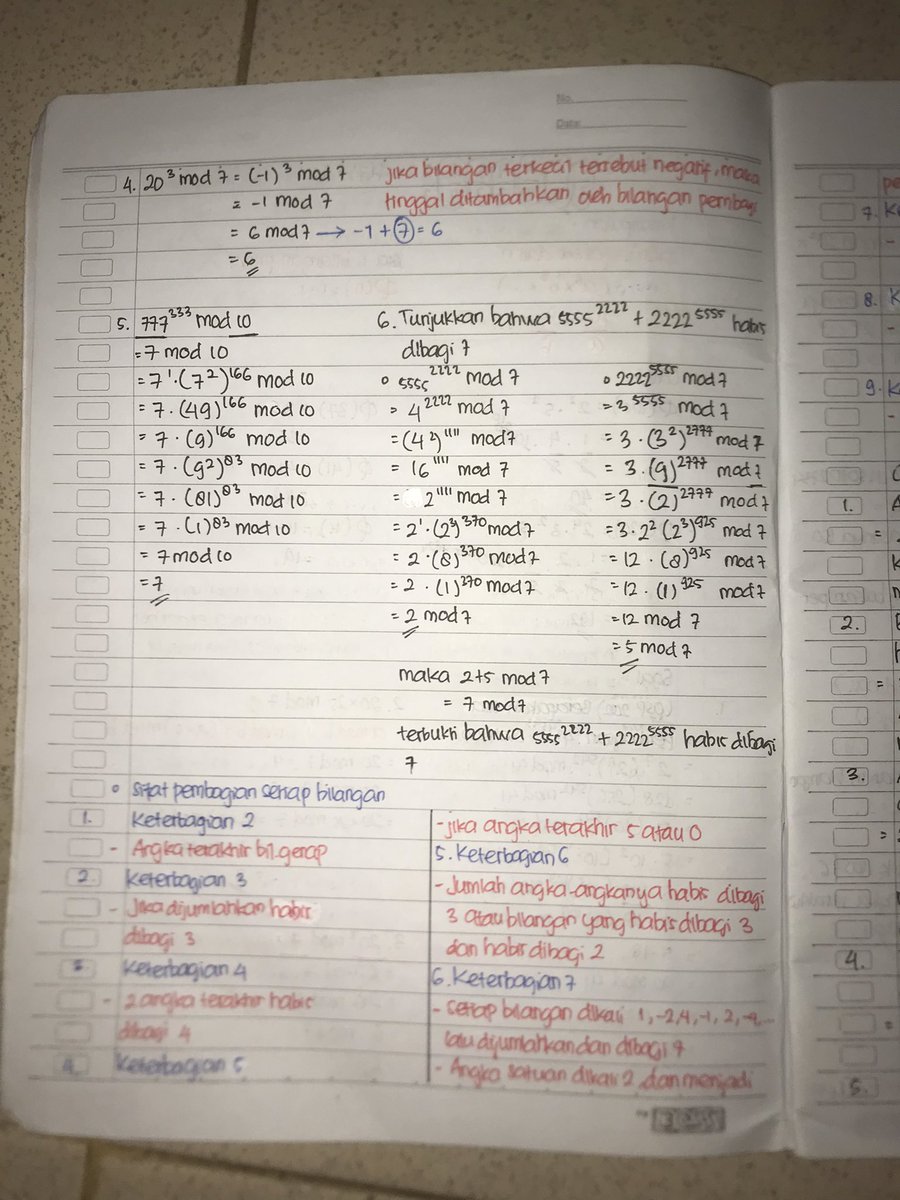 No.
Date:
4. 20³ mod 7 = (-1)³ mod 7
= -1 mod 7
= 6 mod 7 → -1 + 7 = 6
= 6
jika bilangan terkecil tersebut negatif, maka
tinggal ditambahkan oleh bilangan pembagi
5. 777³³³ mod 10
= 7 mod 10
= 7¹·(7²)¹⁶⁶ mod 10
= 7·(49)¹⁶⁶ mod 10
= 7·(9)¹⁶⁶ mod 10
= 7·(9²)⁸³ mod 10
= 7·(81)⁸³ mod 10
= 7·(1)⁸³ mod 10
= 7 mod 10
= 7
6. Tunjukkan bahwa 5555²²²² + 2222⁵⁵⁵⁵ habis
dibagi 7
5555²²²² mod 7
= 4²²²² mod 7
= (4²)¹¹¹¹ mod 7
= 16¹¹¹¹ mod 7
= 2¹¹¹¹ mod 7
= 2¹·(2³)³⁷⁰ mod 7
= 2·(8)³⁷⁰ mod 7
= 2·(1)²⁷⁰ mod 7
= 2 mod 7
2222⁵⁵⁵⁵ mod 7
= 3⁵⁵⁵⁵ mod 7
= 3·(3²)²⁷⁷⁷ mod 7
= 3·(9)²⁷⁷⁷ mod 7
= 3·(2)²⁷⁷⁷ mod 7
= 3·2² (2³)⁹²⁵ mod 7
= 12·(8)⁹²⁵ mod 7
= 12·(1)⁹²⁵ mod 7
= 12 mod 7
= 5 mod 7
maka 2+5 mod 7
= 7 mod 7
terbukti bahwa 5555²²²² + 2222⁵⁵⁵⁵ habis dibagi
7
sifat pembagian setiap bilangan
1. Keterbagian 2
- Angka terakhir bil. genap
2. Keterbagian 3
- Jika dijumlahkan habis
dibagi 3
3 Keterbagian 4
- 2 angka terakhir habis
dibagi 4
4. Keterbagian 5
- jika angka terakhir 5 atau 0
5. Keterbagian 6
- Jumlah angka-angkanya habis dibagi
3 atau bilangan yang habis dibagi 3
dan habis dibagi 2
6. Keterbagian 7
- setiap bilangan dikali 1, -2, 4, -1, 2, -4...
lalu dijumlahkan dan dibagi 7
- Angka satuan dikali 2, dan menjadi
7.
8.
9.
1.
2.
3.
4.
5.